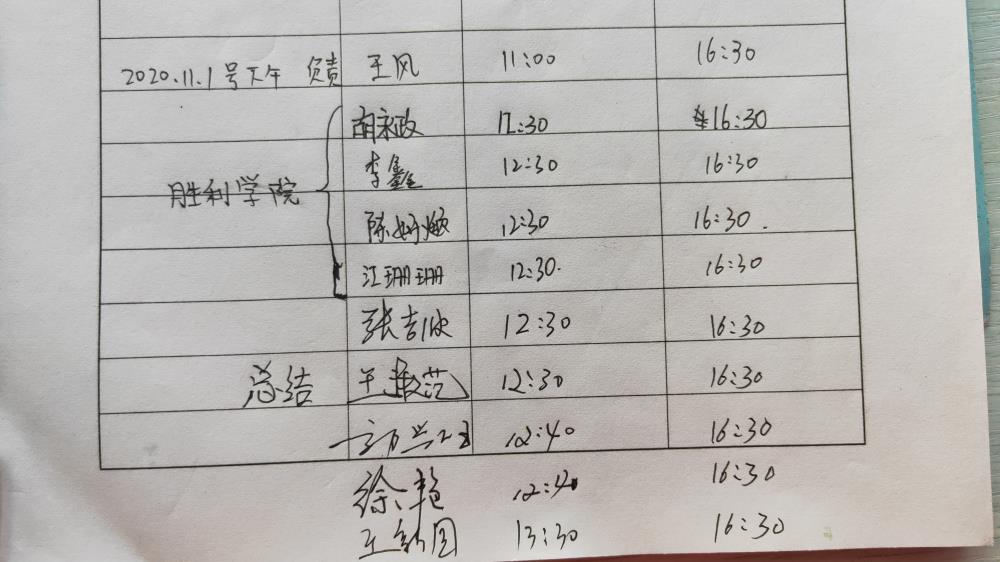 2020.11.1号下午 负责 王风 11:00 16:30
胡永政 12:30 16:30
李鑫 12:30 16:30
胜利学院
陈婷嫩 12:30 16:30.
江珊珊 12:30. 16:30
张吉欣 12:30 16:30
总结 王 范 12:30 16:30
12:40 16:30
徐艳 12:40 16:30
王新国 13:30 16:30